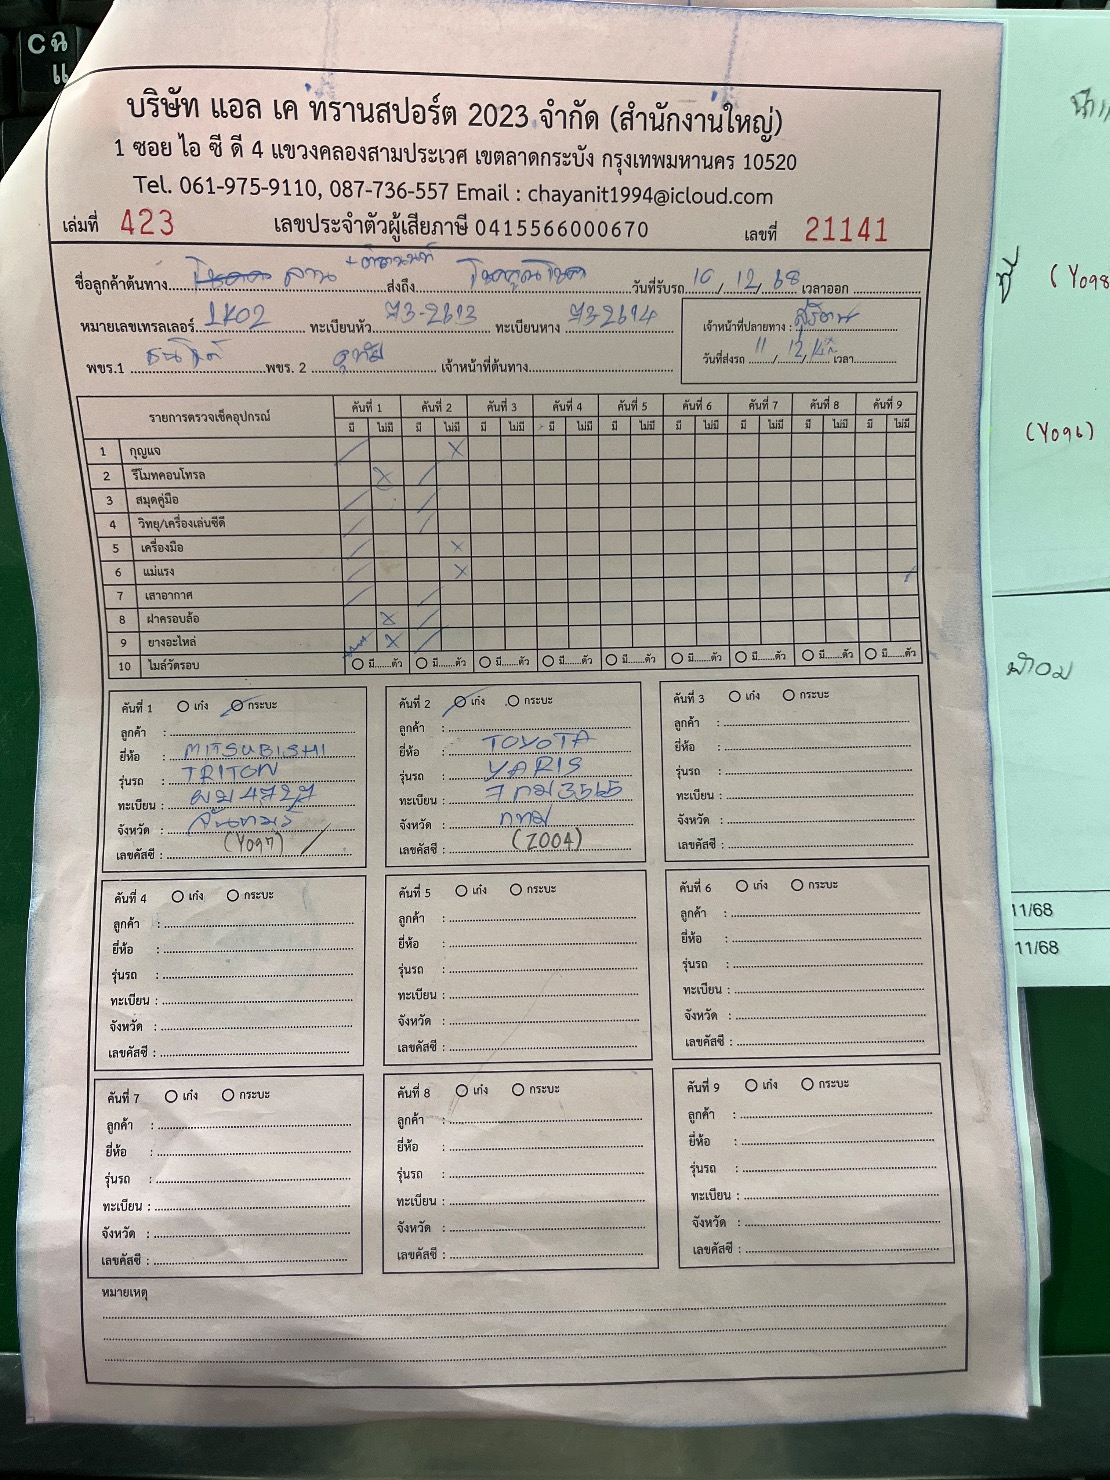 C ฉ
แ
บริษัท แอล เค ทรานสปอร์ต 2023 จำกัด (สำนักงานใหญ่)
1 ซอย ไอ ซี ดี 4 แขวงคลองสามประเวศ เขตลาดกระบัง กรุงเทพมหานคร 10520
Tel. 061-975-9110, 087-736-557 Email : chayanit1994@icloud.com
เล่มที่ 423 เลขประจำตัวผู้เสียภาษี 0415566000670 เลขที่ 21141
ชื่อลูกค้าต้นทาง ลาน ส่งถึง วันที่รับรถ 10 / 12 / 68 เวลาออก
หมายเลขเทรลเลอร์ LK02 ทะเบียนหัว 73-2613 ทะเบียนหาง 73-2614 เจ้าหน้าที่ปลายทาง :
พขร.1 พขร. 2 เจ้าหน้าที่ต้นทาง วันที่ส่งรถ 11 / 12 / เวลา
รายการตรวจเช็คอุปกรณ์ คันที่ 1 คันที่ 2 คันที่ 3 คันที่ 4 คันที่ 5 คันที่ 6 คันที่ 7 คันที่ 8 คันที่ 9
มี ไม่มี มี ไม่มี มี ไม่มี มี ไม่มี มี ไม่มี มี ไม่มี มี ไม่มี มี ไม่มี มี ไม่มี
1 กุญแจ
2 รีโมทคอนโทรล
3 สมุดคู่มือ
4 วิทยุ/เครื่องเล่นซีดี
5 เครื่องมือ
6 แม่แรง
7 เสาอากาศ
8 ฝาครอบล้อ
9 ยางอะไหล่
10 ไมล์วัดรอบ มี......ตัว มี......ตัว มี......ตัว มี......ตัว มี......ตัว มี......ตัว มี......ตัว มี......ตัว มี......ตัว
คันที่ 1 เก๋ง กระบะ
ลูกค้า :
ยี่ห้อ : MITSUBISHI
รุ่นรถ : TRITON
ทะเบียน : ผม 4727
จังหวัด : จันทบุรี
เลขคัสซี : (Y097)
คันที่ 2 เก๋ง กระบะ
ลูกค้า :
ยี่ห้อ : TOYOTA
รุ่นรถ : YARIS
ทะเบียน : 7 กม 3565
จังหวัด : กทม
เลขคัสซี : (Z004)
คันที่ 3 เก๋ง กระบะ
ลูกค้า :
ยี่ห้อ :
รุ่นรถ :
ทะเบียน :
จังหวัด :
เลขคัสซี :
คันที่ 4 เก๋ง กระบะ
ลูกค้า :
ยี่ห้อ :
รุ่นรถ :
ทะเบียน :
จังหวัด :
เลขคัสซี :
คันที่ 5 เก๋ง กระบะ
ลูกค้า :
ยี่ห้อ :
รุ่นรถ :
ทะเบียน :
จังหวัด :
เลขคัสซี :
คันที่ 6 เก๋ง กระบะ
ลูกค้า :
ยี่ห้อ :
รุ่นรถ :
ทะเบียน :
จังหวัด :
เลขคัสซี :
คันที่ 7 เก๋ง กระบะ
ลูกค้า :
ยี่ห้อ :
รุ่นรถ :
ทะเบียน :
จังหวัด :
เลขคัสซี :
คันที่ 8 เก๋ง กระบะ
ลูกค้า :
ยี่ห้อ :
รุ่นรถ :
ทะเบียน :
จังหวัด :
เลขคัสซี :
คันที่ 9 เก๋ง กระบะ
ลูกค้า :
ยี่ห้อ :
รุ่นรถ :
ทะเบียน :
จังหวัด :
เลขคัสซี :
หมายเหตุ
(Y098
(Y096)
11/68
11/68